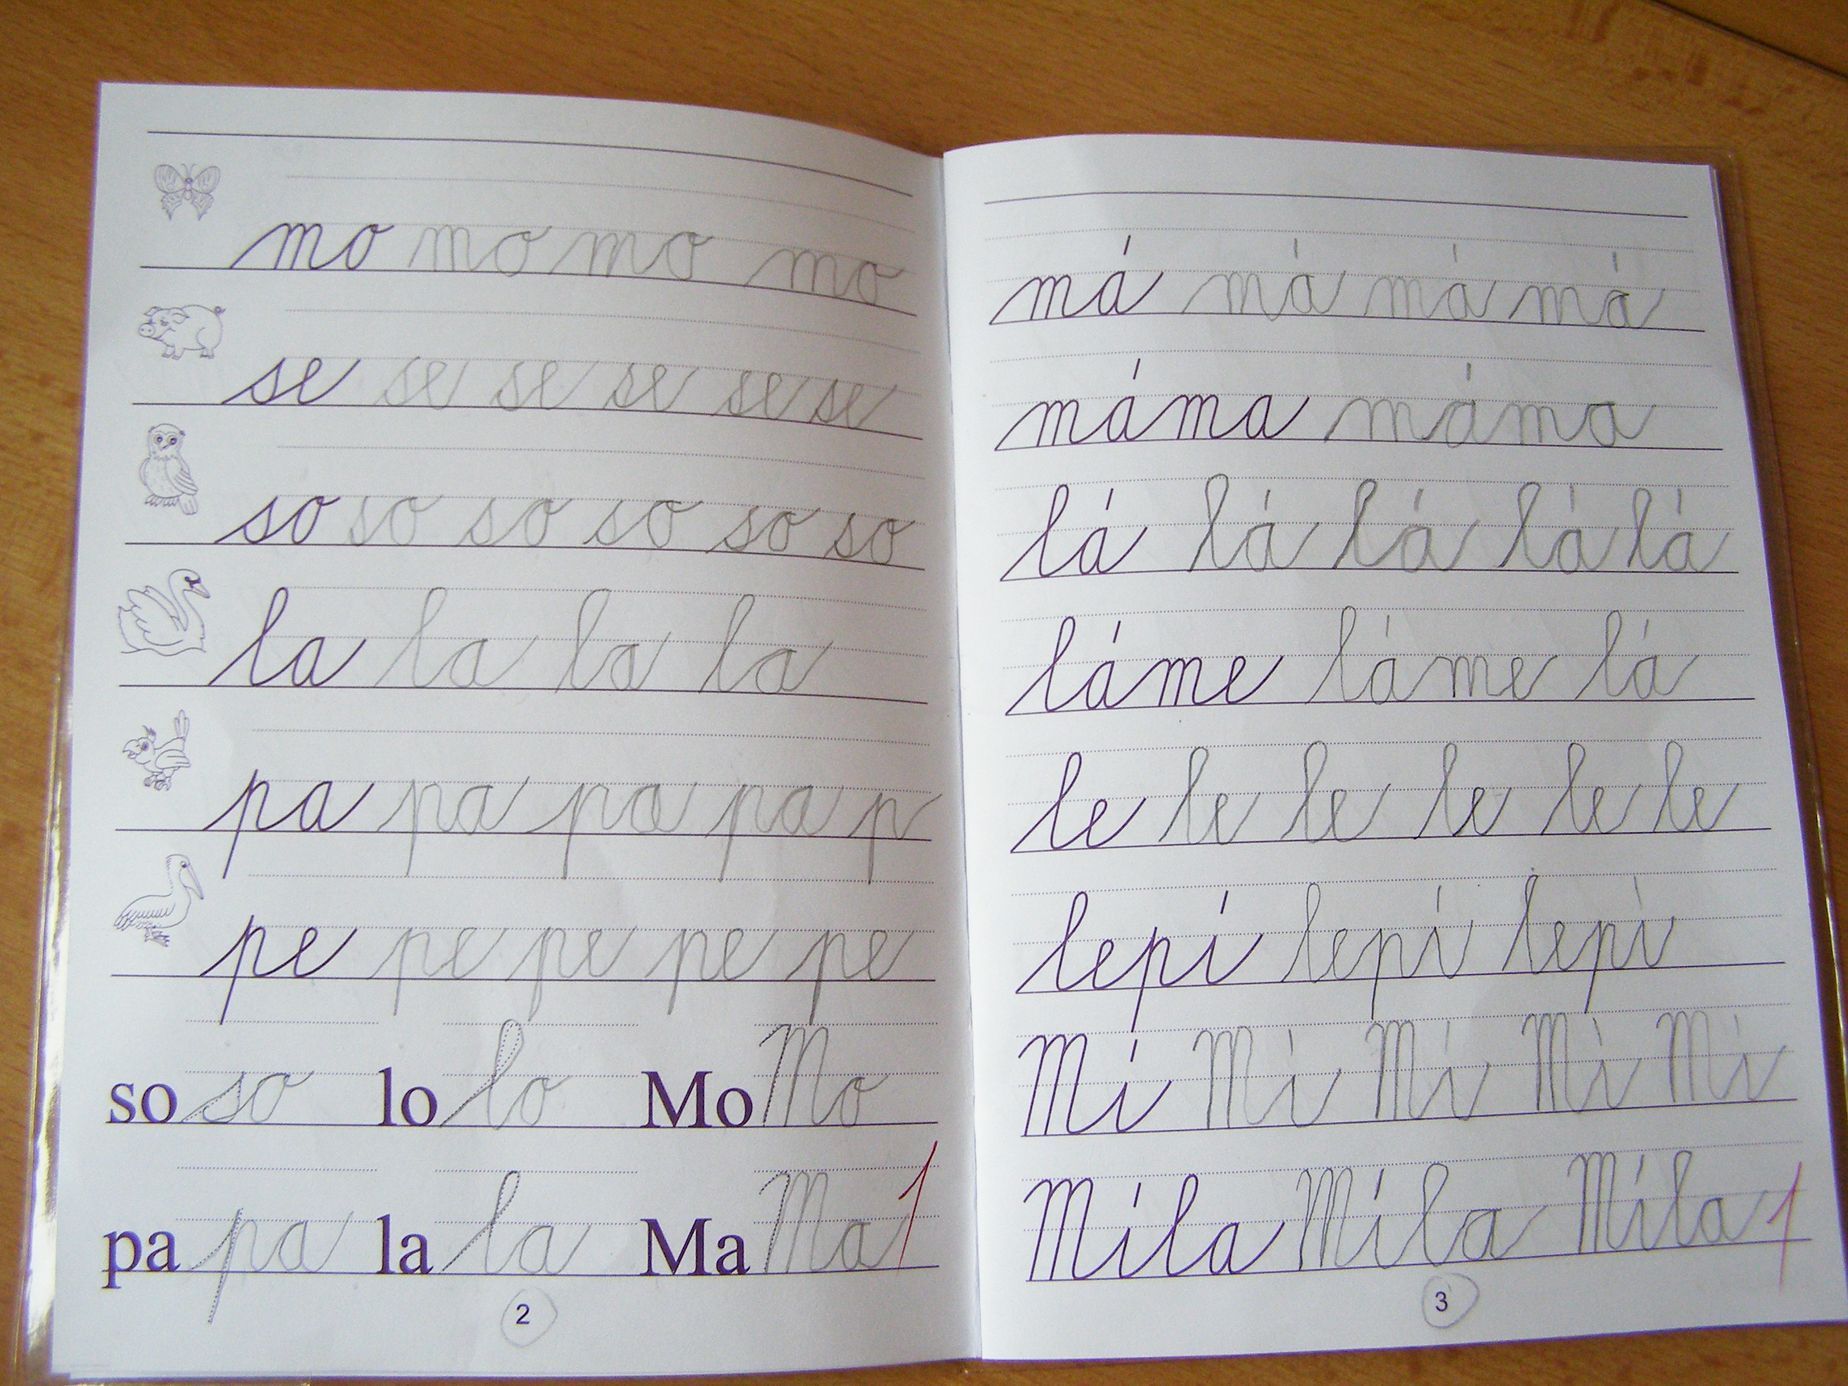 mo mo mo mo
se se se se se se
so so so so so so
la la la la
pa pa pa pa p
pe pe pe pe pe
so so lo lo Mo Mo
pa pa la la Ma Ma 1
2
má má má má
máma máma
lá lá lá lá lá
láme láme lá
le le le le le le
lepí lepí lepí
Mí Mí Mí Mí Mí
Míla Míla Míla 1
3